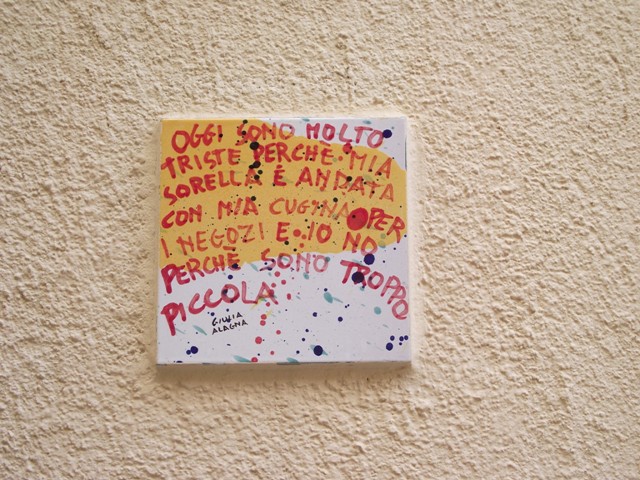 OGGI SONO MOLTO
TRISTE PERCHÈ MIA
SORELLA È ANDATA
CON MIA CUGINA PER
I NEGOZI E IO NO
PERCHÈ SONO TROPPO
PICCOLA
GIULIA
ALAGNA